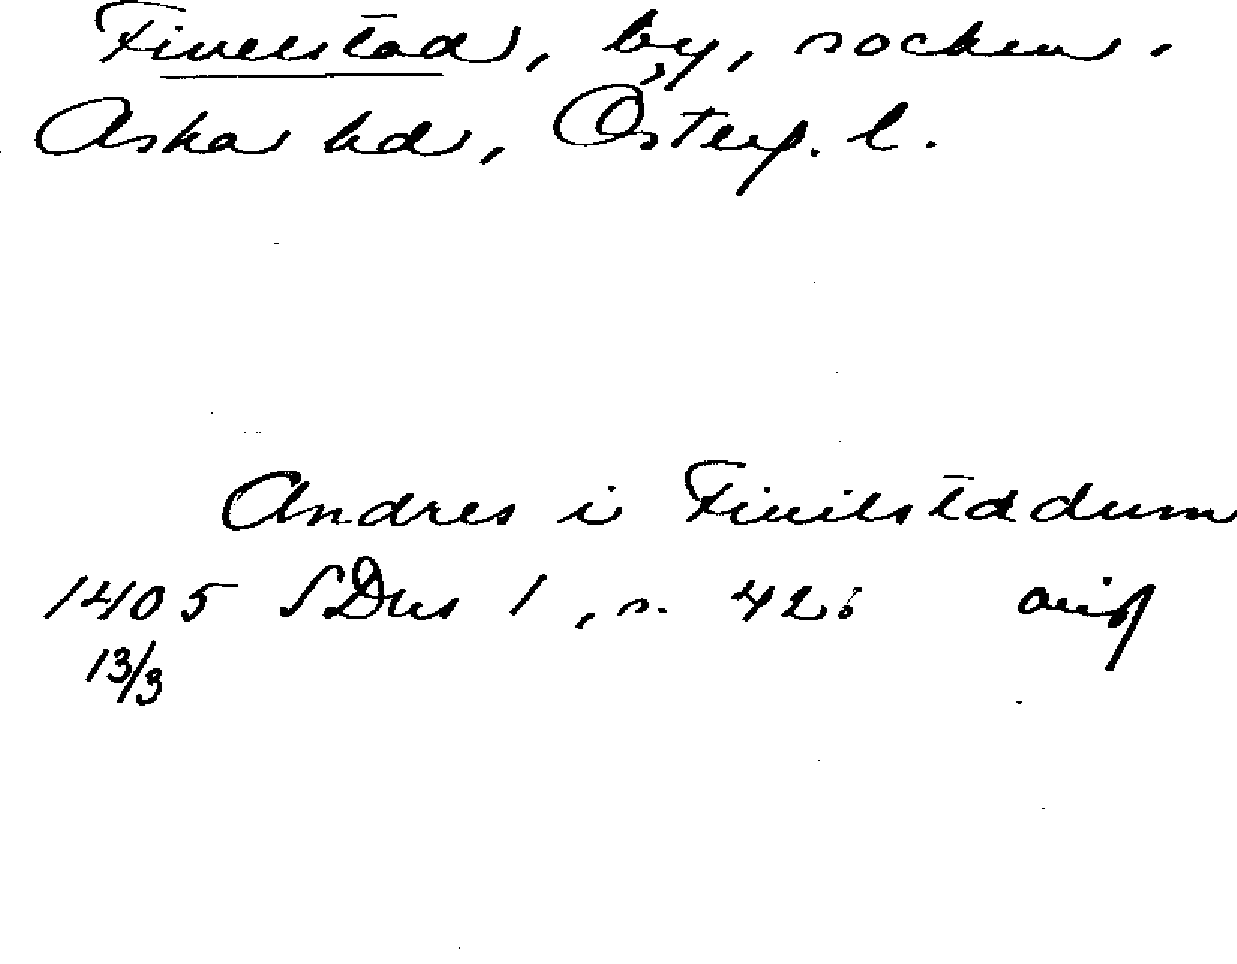 Fivelstad, by, socken.
Aska hd, Österg. l.
Andres i Fiuilstadum
1405 SDns 1, s. 426 avsk
13/3